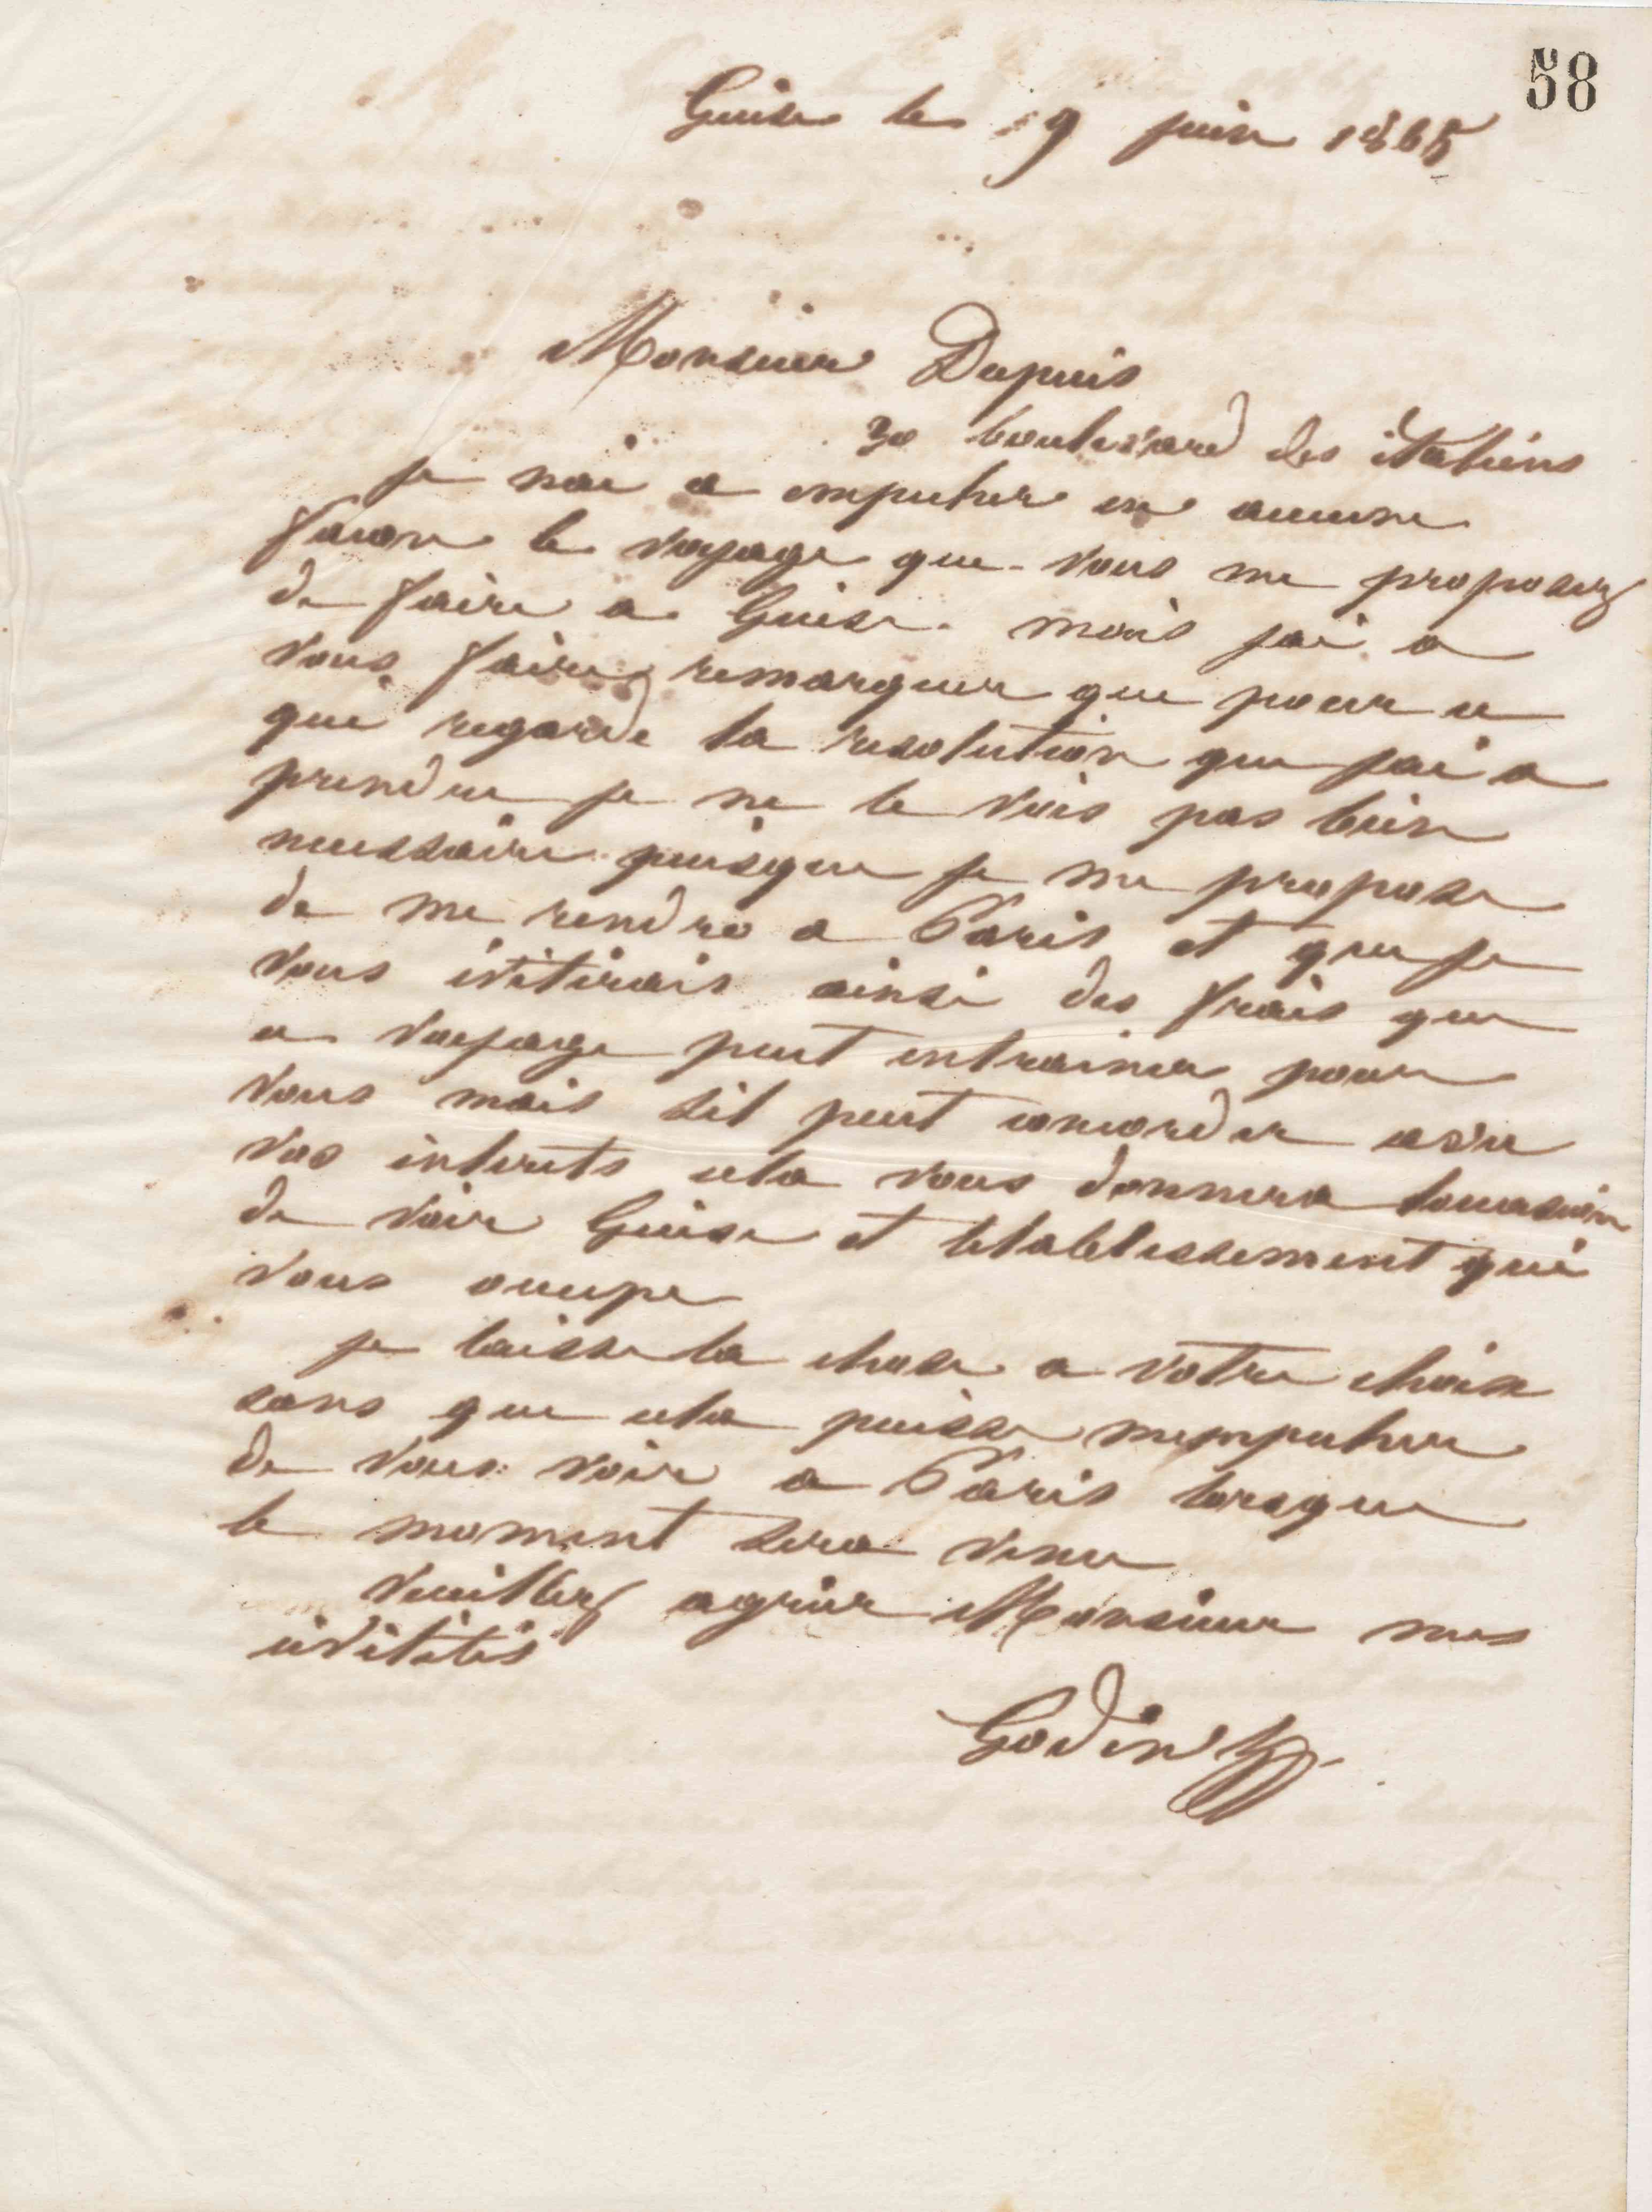 58
Guise le 19 juin 1865
Monsieur Dupuis
30 boulevard des italiens
je nai a empecher en aucune
facon le voyage que vous me proposez
de faire a Guise. mais jai a
vous faire remarquer que pour ce
qui regarde la resolution que jai a
prendre je ne le vois pas bien
necessaire puisque je me propose
de me rendre a Paris et que je
vous éviterais ainsi des frais que
ce voyage peut entrainer pour
vous mais sil peut concorder avec
vos interets cela vous donnera loccasion
de voir Guise et letablissement qui
vous occupe
je laisse la chose a votre choix
sans que cela puisse mempecher
de vous voir a Paris lorsque
le moment sera venu
veuillez agréer Monsieur mes
civilités
Godin